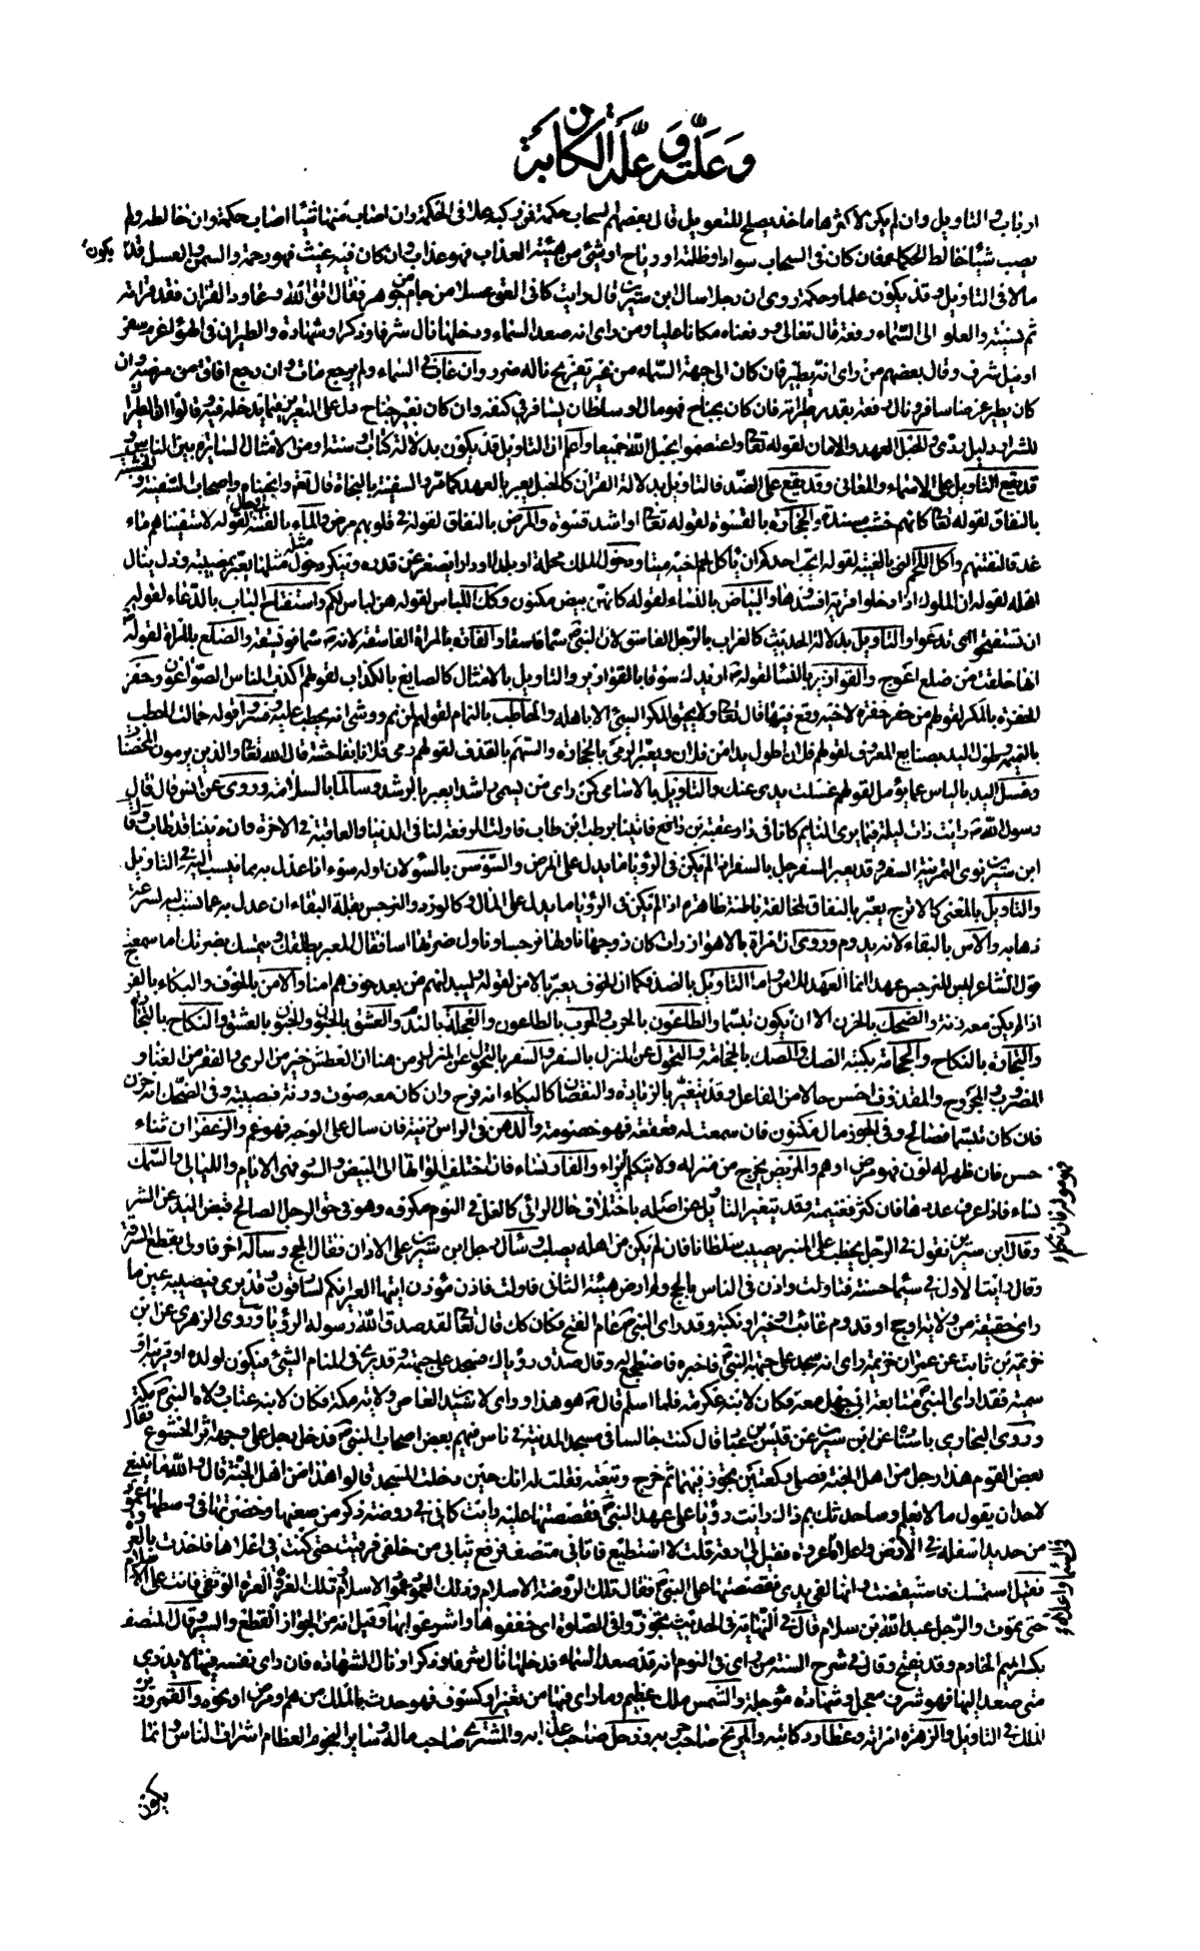 ارتاب والتاويل وان لم يكن لاكثرها ماخذ يصلح للتعويل قال بعضهم السحاب حكمة فمن ركبه علا فى الحكمة وان اصاب منها شيئا اصاب حكمة وان خالطه ولم
يصب شيئا خالط الحكماء فان كان فى السحاب سواد او ظلمة او رياح او شئ من هيئة العذاب فهو عذاب وان كان فيه غيث فهو رحمة والسمن والعسل قد يكون
مالا فى التاويل وقد يكون علما وحكمة روى ان رجلا سال ابن سيرين قال رايت كانى العق عسلا من جام من جوهر فقال اتق الله وعاود القران فقد قراته
ثم نسيته والعلو الى السماء رفعة قال تعالى ورفعناه مكانا عليا ومن راى انه صعد السماء ودخلها نال شرفا وذكرا وشهادة والطيران فى الهواء
او نيل شرف وقال بعضهم من راى انه يطير فان كان الى جهة السماء من غير تعريج ناله ضرر وان غاب فى السماء ولم يرجع مات وان رجع افاق من مرضه وان
كان يطير عرضا سافر ونال رفعة بقدر طيرانه فان كان بجناح فهو مال او سلطان يسافر فى كنفه وان كان بغير جناح دل على التعزير فيما يدخل فيه وقالوا ان الطيران
للشرار دليل ردى والحبل العهد والامان لقوله تعالى واعتصموا بحبل الله جميعا واعلم ان التاويل قد يكون بدلالة كتاب او سنة او من الامثال السائرة بين الناس و
قد يقع التاويل على الاسماء والمعانى وقد يقع على الضد فالتاويل بدلالة القران كالحبل يعبر بالعهد كما مر والسفينة بالنجاة قال تعالى وانجيناه واصحاب السفينة والخشب
بالنفاق لقوله تعالى كانهم خشب مسندة والحجارة بالقسوة لقوله تعالى او اشد قسوة والمرض بالنفاق لقوله فى قلوبهم مرض والماء بالفتنة لقوله لاسقيناهم ماء
غدقا لنفتنهم واكل اللحم النى بالغيبة لقوله ايحب احدكم ان ياكل لحم اخيه ميتا ودخول الملك محلة او بلدا او دارا يصغر عن قدره وينكر دخول مثله مثلها يعبر بمصيبة وذل ينال
اهله لقوله ان الملوك اذا دخلوا قرية افسدوها والبياض بالنساء لقوله كانهن بيض مكنون وكك اللباس لقوله هن لباس لكم واستفتاح الباب بالدعاء لقوله
ان تستفتحوا اى تدعوا والتاويل بدلالة الحديث كالغراب بالرجل الفاسق لان النبى سماه فاسقا والفارة بالمراة الفاسقة لانه سماها فويسقة والضلع بالمراة لقوله
انها خلقت من ضلع اعوج والقوارير بالنساء لقوله رويدك سوقا بالقوارير والتاويل بالامثال كالصايغ بالكذاب لقولهم اكذب الناس الصواغون وحفر
الحفرة بالمكر لقولهم من حفر حفرة لاخيه وقع فيها قال تعالى ولا يحيق المكر السيئ الا باهله والحاطب بالنمام لقولهم لمن نم ووشى انه يحطب عليه وفسروا قوله حمالة الحطب
بالنميمة وطول اليد بصنايع المعروف لقولهم فلان اطول يدا من فلان ويعبر الرمى بالحجارة والسهم بالقذف لقولهم رمى فلانا بفاحشة قال الله تعالى والذين يرمون المحصنات
وغسل اليد بالياس عما يؤمل لقولهم غسلت يدى عنك والتاويل بالاسامى كمن راى من يسمى راشدا يعبر بالرشد وسالما بالسلامة وروى عن انس قال قال
رسول الله رايت ذات ليلة فيما يرى النايم كانا فى دار عقبة بن رافع فاتينا برطب ابن طاب فاولت الرفعة لنا فى الدنيا والعاقبة فى الاخرة وان ديننا قد طاب وقال
والتاويل بالمعنى كالاترج يعبر بالنفاق لمخالفة باطنه ظاهره اذا لم يكن فى الرؤيا ما يدل على المال وكالورد والنرجس بقلة البقاء ان عدل به عما نسب اليه لسرعة
ذهابه والاس بالبقاء لانه يدوم وروى ان امراة بالاهواز رات كان زوجها ناولها نرجسا وناول ضرتها اسا فقال المعبر يطلقك ويتمسك بضرتك اما سمعت
قول الشاعر ليس للنرجس عهد انما العهد للاس واما التاويل بالضد فكما ان الخوف يعبر بالامن لقوله وليبدلنهم من بعد خوفهم امنا والامن بالخوف والبكاء بالفرح
اذا لم يكن معه رنة والضحك بالحزن الا ان يكون تبسما والطاعون بالحرب والحرب بالطاعون والعجلة بالندم والعشق بالجنون والجنون بالعشق والنكاح بالتجارة
والتجارة بالنكاح والحجامة بكتبة الصك والصك بالحجامة والتحول عن المنزل بالسفر والسفر بالتحول عن المنزل ومن هنا ان العطش خير من الرى والفقر من الغنا و
المضروب والمجروح والمقذوف احسن حالا من الفاعل وقد يتغير بالزيادة والنقصان كالبكاء انه فرح وان كان معه صوت ورنة فمصيبة وفى الضحك انه حزن
فان كان تبسما فصالح وفى الجوز مال مكنون فان سمعت له قعقعة فهو خصومة والدهن فى الراس زينة فان سال على الوجه فهو غم والزعفران ثناء
حسن فان ظهر له لون فهو مرض او هم والمريض يخرج من منزله ولا يتكلم
نساء فاذا عرف عددها فان كثر فغنيمة وقد يتغير التاويل عن اصله باختلاف حال الرائى كالغل فى النوم مكروه وهو فى حق الرجل الصالح قبض اليد عن الشر
وقال ابن سيرين نقول فى الرجل يخطب على المنبر يصيب سلطانا فان لم يكن من اهله يصلب وسال رجل ابن سيرين على الاذان فقال الحج وساله اخر فاول بقطع السرقة
وقال رايت الاول فى سيما حسنة فتاولت واذن فى الناس بالحج ولم ارض هيئة الثانى فاولت فاذن مؤذن ايتها العير انكم لسارقون وقد يرى فيصيبه عين ما
راى حقيقة من ولاية او حج او قدوم غائب او خير او نكبة وقد راى النبى عام الفتح فكان كك قال تعالى لقد صدق الله رسوله الرؤيا وروى الزهرى عن ابن
خزيمة بن ثابت عن عمه ان خزيمة راى انه سجد على جبهة النبى فاخبره فاضطجع له وقال صدق رؤياك فسجد على جبهته وقد يرى فى المنام الشئ فيكون لولده او قريبه او
سميه فقد راى النبى مبايعة ابى جهل معه فكان لابنه عكرمة فلما اسلم قال هو هذا وراى لاسيد بن العاص ولاية مكة فكان لابنه عتاب ولاه النبى مكة
وروى البخارى باسناده عن ابن سيرين عن قيس بن عباد قال كنت جالسا فى مسجد المدينة فى ناس فيهم بعض اصحاب النبى فدخل رجل على وجهه اثر الخشوع فقال
بعض القوم هذا رجل من اهل الجنة فصلى ركعتين تجوز فيهما ثم خرج وتبعته فقلت له انك حين دخلت المسجد قالوا هذا من اهل الجنة قال والله ما ينبغى
لاحد ان يقول ما لا يعلم وساحدثك بم ذاك رايت رؤيا على عهد النبى فقصصتها عليه رايت كانى فى روضة ذكر من سعتها وخضرتها فى وسطها عمود
من حديد اسفله فى الارض واعلاه عروة فقيل لى ارقه قلت لا استطيع فاتانى منصف فرفع ثيابى من خلفى فرقيت حتى كنت فى اعلاها فاخذت بالعروة
فقيل استمسك فاستيقظت وانها لفى يدى فقصصتها على النبى فقال تلك الروضة الاسلام وذلك العمود عمود الاسلام وتلك العروة العروة الوثقى فانت على الاسلام
حتى تموت والرجل عبد الله بن سلام قال فى النهاية فى الحديث تجوزوا فى الصلوة اى خففوها واسرعوا بها وقيل انه من الجواز القطع والسير وقال المنصف
بكسر الميم الخادم وقد يفتح وقال فى شرح السنة من راى فى النوم انه قد صعد السماء فدخلها نال شرفا وذكرا ونال الشهادة فان راى نفسه فيها لا يدرى
متى صعد اليها فهو شرف معجل وشهادة مؤجلة والشمس ملك عظيم وما راى فيها من تغير او كسوف فهو حدث بالملك من هم او مرض او نحوه والقمر وزير
الملك فى التاويل والزهرة امراته وعطارد كاتبه والمريخ صاحب حربه وزحل صاحب عذابه والمشترى صاحب ماله وساير النجوم العظام اشراف الناس وانما
يكون